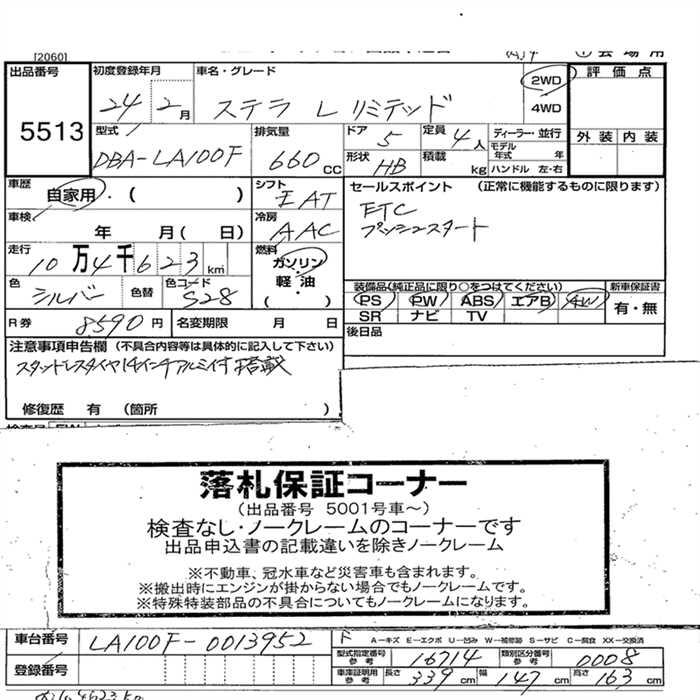 [2060]
出品番号 5513
初度登録年月 24 2月
車名・グレード ステラ L リミテッド
2WD
4WD
評価点
外装 内装
型式 DBA-LA100F
排気量 660 CC
ドア 5
定員 4人
形状 HB
積載 kg
ディーラー・並行
モデル年式 年
ハンドル 左・右
車歴 自家用・( )
シフト
冷房 AAC
セールスポイント (正常に機能するものに限ります)
ETC
プッシュスタート
車検 年 月( 日)
走行 10万4千623km
燃料 ガソリン・軽油・
色 シルバー 色替 色コード S28
装備品(純正品に限り○をつけてください)
PS PW ABS エアB AW
SR ナビ TV
新車保証書
有・無
R券 8590円 名変期限 月 日
後日品
注意事項申告欄(不具合内容等は具体的に記入して下さい)
スタッドレスタイヤ14インチアルミ付 搭載
修復歴 有 (箇所 )
落札保証コーナー
(出品番号 5001号車~)
検査なし・ノークレームのコーナーです
出品申込書の記載違いを除きノークレーム
※不動車、冠水車など災害車も含まれます。
※搬出時にエンジンが掛からない場合でもノークレームです。
※特殊特装部品の不具合についてもノークレームになります。
車台番号 LA100F-0013952
A-キズ E-エクボ U-凹み W-補修跡 S-サビ C-腐食 XX-交換済
登録番号
型式指定番号 参考 16714
類別区分番号 参考 0008
車庫証明用 参考 長さ 339cm 幅 147cm 高さ 163cm